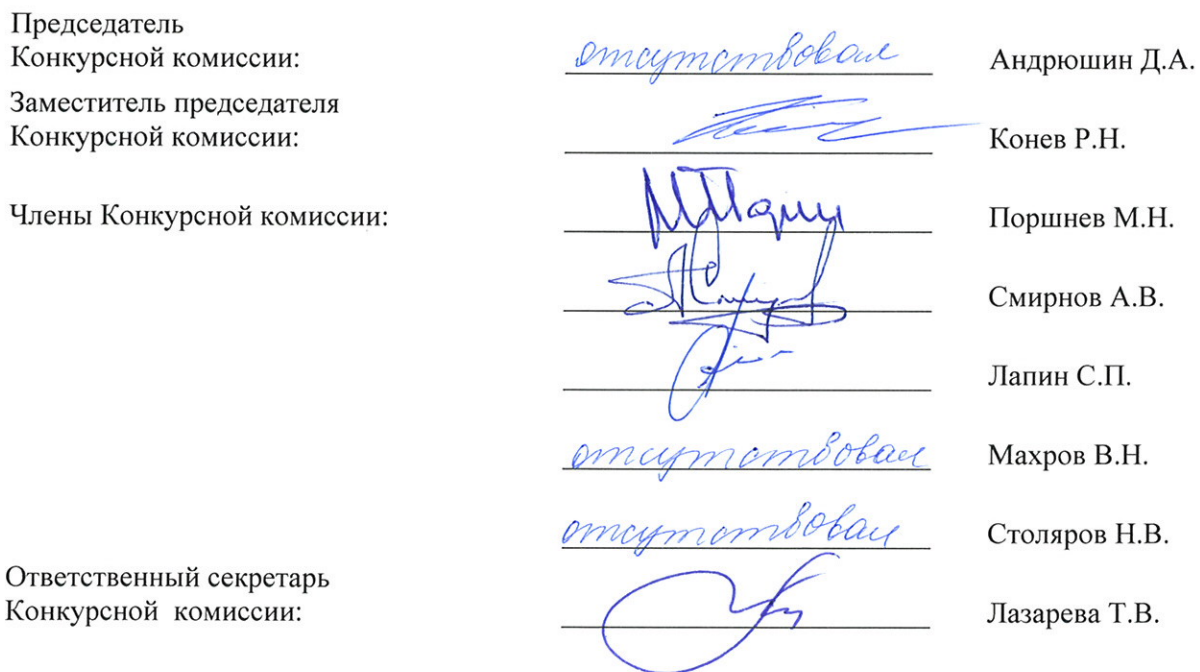 Председатель
Конкурсной комиссии: отсутствовал Андрюшин Д.А.
Заместитель председателя
Конкурсной комиссии: Конев Р.Н.
Члены Конкурсной комиссии: Поршнев М.Н.
Смирнов А.В.
Лапин С.П.
отсутствовал Махров В.Н.
отсутствовал Столяров Н.В.
Ответственный секретарь
Конкурсной комиссии: Лазарева Т.В.